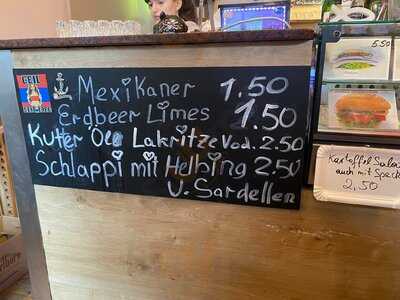 GEIL
Mexikaner 1.50
Erdbeer Limes 1.50
Kutter Öl Lakritze Vod. 2.50
Schlappi mit Helbing 2.50
U. Sardellen
5.50
Kartoffel Salat
auch mit Speck
2,50